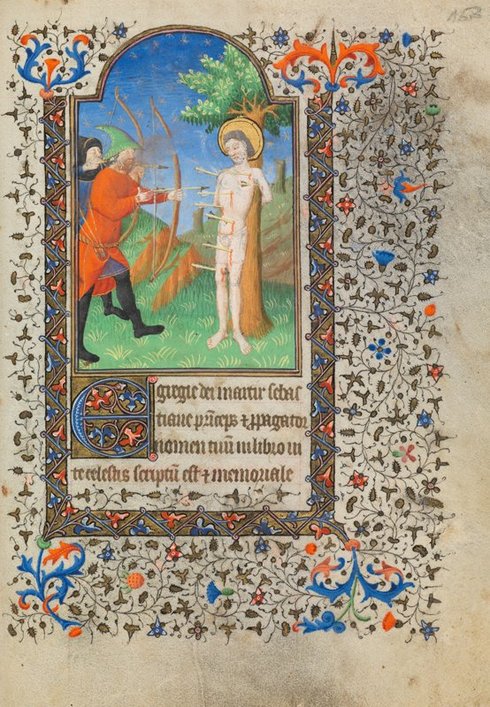 158
Egregie dei martir sebas
tiane princeps & ppagator
nomen tuum in libro in
te celestis scriptū est & memoriale